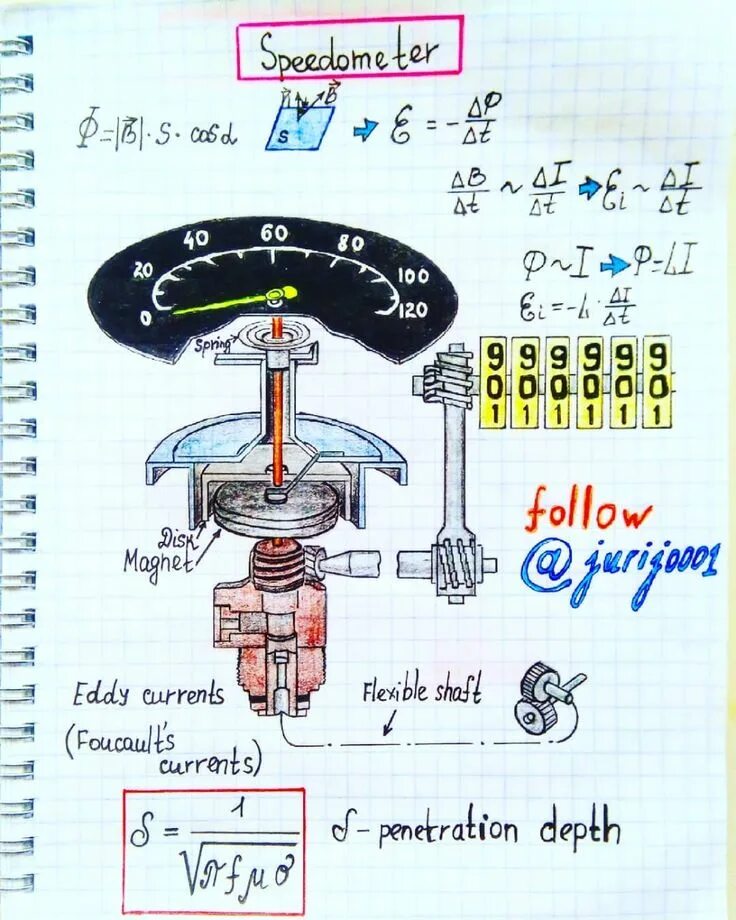 Speedometer
Φ=|B⃗|·S·cosα
n⃗ B⃗
S
ℰ = -ΔΦ/Δt
ΔB/Δt ~ ΔI/Δt ➡ ℰi ~ ΔI/Δt
Φ~I ➡ Φ=LI
ℰi=-L·ΔI/Δt
0 20 40 60 80 100 120
Spring
9 9 9 9 9 9
0 0 0 0 0 0
1 1 1 1 1 1
follow
@jurij0001
Disk
Magnet
Eddy currents
(Foucault's
currents)
Flexible shaft
δ = 1/√(πfμσ)
δ - penetration depth